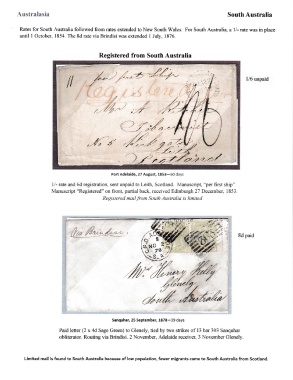 Australasia
South Australia
Rates for South Australia followed from rates extended to New South Wales. For South Australia, a 1/- rate was in place
until 1 October, 1854. The 8d rate via Brindisi was extended 1 July, 1876.
Registered from South Australia
1/6 unpaid
per first Ship
Registered
Mr A
Scotland
Port Adelaide, 27 August, 1853—60 days
1/- rate and 6d registration, sent unpaid to Leith, Scotland. Manuscript, "per first ship."
Manuscript "Registered" on front, partial back, received Edinburgh 27 December, 1853.
Registered mail from South Australia is limited
8d paid
Via Brindisi
Mrs Henry Kelly
Glenelg
South Australia
Sanquhar, 25 September, 1879—39 days
Paid letter (2 x 4d Sage Green) to Glenelg, tied by two strikes of 13 bar 303 Sanquhar
obliterator. Routing via Brindisi. 2 November, Adelaide received, 3 November Glenelg.
Limited mail is found to South Australia because of low population, fewer migrants came to South Australia from Scotland.